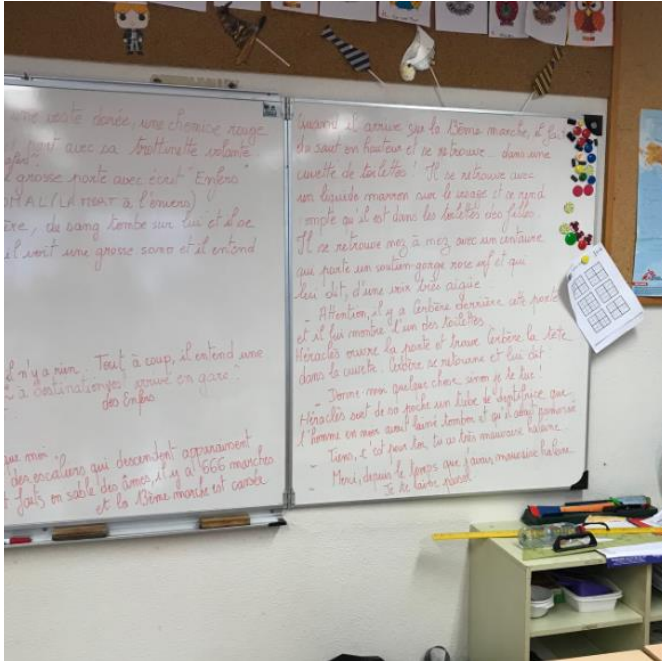 une veste dorée, une chemise rouge
part avec sa trottinette volante
grosse porte avec écrit "Enfers"
(LA MORT à l'envers)
du sang tombe sur lui et il se
il voit une grosse sono et il entend
il n'y a rien. Tout à coup, il entend une
à destination des arrive en gare :
des Enfers
que moi
des escaliers qui descendent apparaissent
faits en sable des âmes, il y a 666 marches
et la 13ème marche est cassée
Quand il arrive sur la 13ème marche, il fait
du saut en hauteur et se retrouve... dans une
cuvette de toilettes ! Il se retrouve avec
un liquide marron sur le visage et se rend
compte qu'il est dans les toilettes des filles.
Il se retrouve nez à nez avec un centaure
qui porte un soutien-gorge rose et qui
lui dit, d'une voix très aigüe :
- Attention, il y a Cerbère derrière cette porte
et il lui montre l'un des toilettes.
Héraclès ouvre la porte et trouve Cerbère la tête
dans la cuvette. Cerbère se retourne et lui dit :
- Donne-moi quelque chose sinon je te tue !
Héraclès sort de sa poche un tube de dentifrice que
l'homme en noir avait laissé tomber et qu'il avait ramassé
- Tiens, c'est pour toi, tu as très mauvaise haleine.
- Merci, depuis le temps que j'avais mauvaise haleine.
Je te laisse passer.